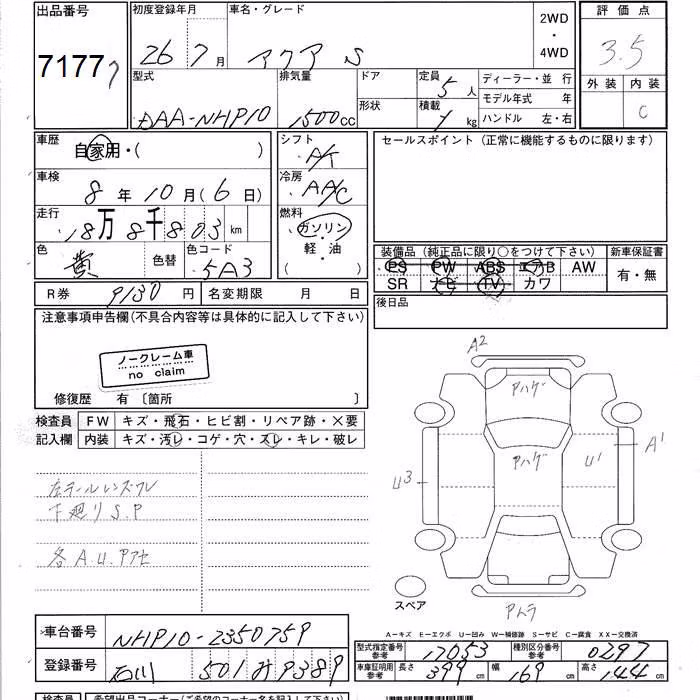 出品番号 初度登録年月 車名・グレード 2WD ・ 4WD 評価点
7177 26 7月 アクア S 3.5
外装 内装
C
型式 排気量 ドア 定員 5人 ディーラー・並行
形状 積載 kg モデル年式 年
DAA-NHP10 1500cc ハンドル 左・右
車歴 自家用・( )
シフト A/T
セールスポイント (正常に機能するものに限ります)
車検 8年10月(6日)
冷房 AA/C
走行 18万8千803km
燃料 ガソリン・軽・油 ( )
色 黄 色替 色コード 5A3
装備品 (純正品に限り○をつけて下さい) 新車保証書
PS PW ABS エアB AW 有・無
SR ナビ TV カワ
R券 9130円 名変期限 月 日
後日品
注意事項申告欄(不具合内容等は具体的に記入して下さい)
ノークレーム車
no claim
修復歴 有〔箇所 〕
検査員 FW キズ・飛石・ヒビ割・リペア跡・X要
記入欄 内装 キズ・汚レ・コゲ・穴・スレ・キレ・破レ
左テールレンズワレ
下廻りS.P
各A.U.アアセ
A2
アハゲ
アハゲ
U1
A1
U3
アムラ
スペア
A-キズ E-エクボ U-凹み W-補修跡 S-サビ C-腐食 XX-交換済
車台番号 NHP10-2350759
型式指定番号 参考 17053 種別区分番号 参考 0297
登録番号 石川 501 み9389
車庫証明用 参考 長さ 399cm 幅 169cm 高さ 144cm
検査員 希望出品コーナー(ご希望のコーナー名を記入して下さい)